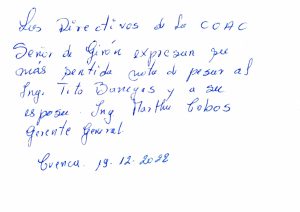 Los Directivos de la COAC
Señor de Girón expresan su
más sentida nota de pesar al
Ing. Tito Banegas y a su
esposa. Ing Martha Cobos
Gerente General.
Cuenca. 19.12.2022